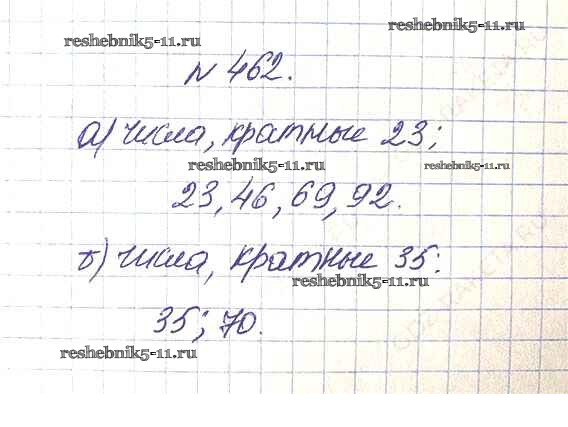 reshebnik5-11.ru
reshebnik5-11.ru
№ 462.
а) числа, кратные 23;
reshebnik5-11.ru
reshebnik5-11.ru
23, 46, 69, 92.
б) числа, кратные 35:
reshebnik5-11.ru
35; 70.
reshebnik5-11.ru